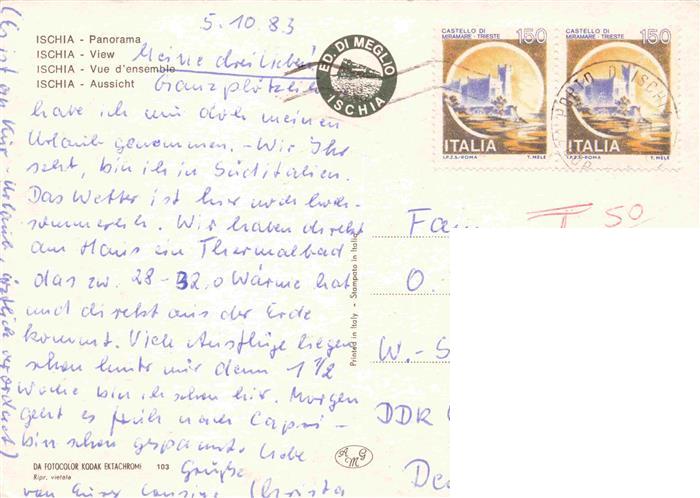 5.10.83
ISCHIA - Panorama
ISCHIA - View
ISCHIA - Vue d'ensemble
ISCHIA - Aussicht
Meine drei Lieben!
Ganz plötzlich
habe ich mir doch meinen
Urlaub genommen. - Wie Ihr
seht, bin ich in Süditalien.
Das Wetter ist hier noch hoch-
sommerlich. Wir haben direkt
am Haus ein Thermalbad
das zw. 28 - 32,0 Wärme hat
und direkt aus der Erde
kommt. Viele Ausflüge liegen
schon hinter mir denn 1 1/2
Woche bin ich schon hier. Morgen
geht es früh nach Capri -
bin schon gespannt. Liebe
Grüße
von Eurer Cousine Christa
(Es ist ein Kur-Urlaub, ärztlich verordnet)
ED. DI MEGLIO
ISCHIA
CASTELLO DI
MIRAMARE - TRIESTE
150
ITALIA
I.P.Z.S. - ROMA
T. MELE
CASTELLO DI
MIRAMARE - TRIESTE
150
ITALIA
I.P.Z.S. - ROMA
T. MELE
PORTO D'ISCHIA
T 50
Fam
O.
W.-S
DDR
De
Printed in Italy - Stampato in Italia
AGM
DA FOTOCOLOR KODAK EKTACHROME 103
Ripr. vietata